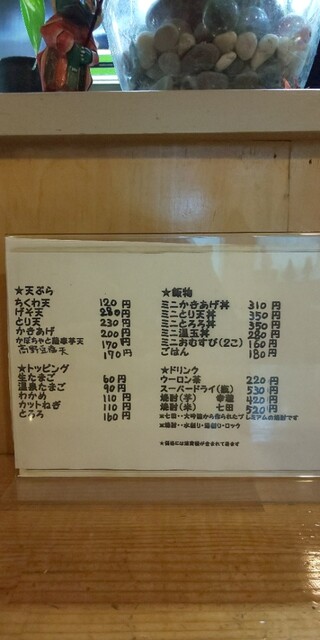 ★天ぷら
ちくわ天 120円
げそ天 280円
とり天 230円
かきあげ 200円
かぼちゃと薩摩芋天 170円
高野豆腐天 170円
★トッピング
生たまご 60円
温泉たまご 90円
わかめ 110円
カットねぎ 110円
とろろ 160円
★飯物
ミニかきあげ丼 310円
ミニとり天丼 350円
ミニとろろ丼 350円
ミニ温玉丼 280円
ミニおむすび(2こ) 160円
ごはん 180円
★ドリンク
ウーロン茶 220円
スーパードライ(瓶) 530円
焼酎(芋) 420円
焼酎(米) 七田 520円
※七田・・大吟醸から作られたプレミアムの焼酎です
※焼酎・・水割り・湯割り・ロック
※価格には消費税が含まれて居ます